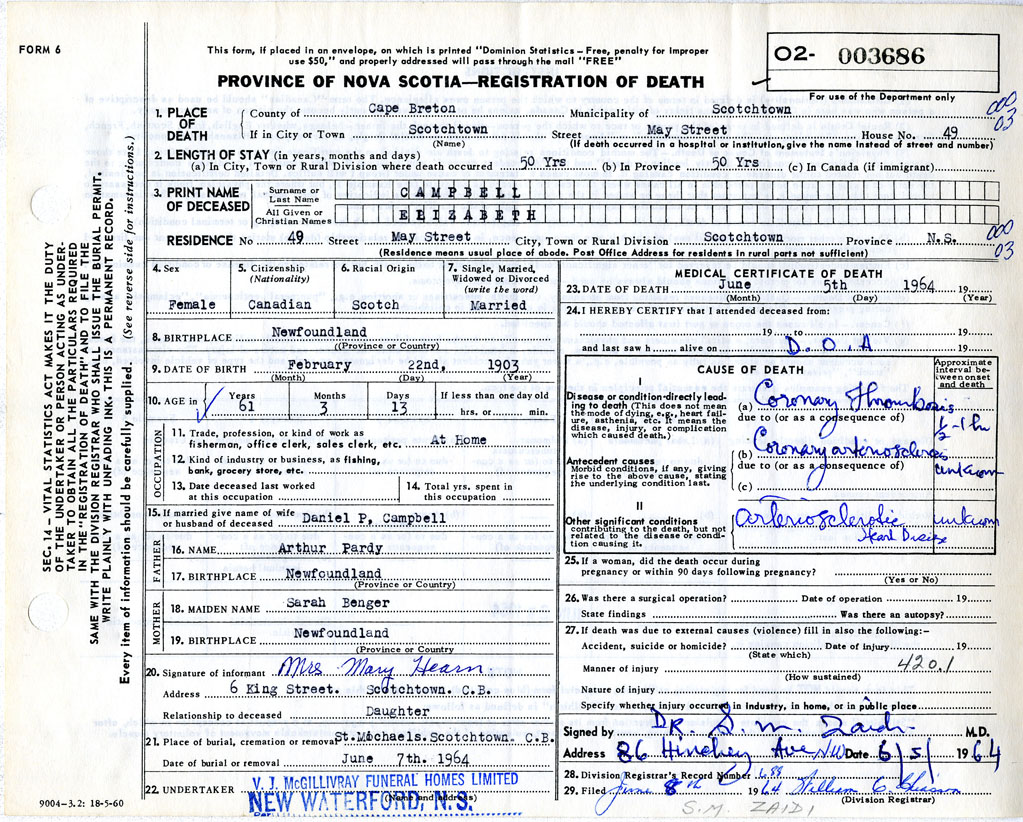 FORM 6
This form, if placed in an envelope, on which is printed "Dominion Statistics – Free, penalty for improper
use $50," and properly addressed will pass through the mail "FREE"
PROVINCE OF NOVA SCOTIA—REGISTRATION OF DEATH
O2- 003686
For use of the Department only
000
03
1. PLACE OF DEATH
County of Cape Breton Municipality of Scotchtown
If in City or Town Scotchtown Street May Street House No. 49
(Name) (If death occurred in a hospital or institution, give the name instead of street and number)
2. LENGTH OF STAY (in years, months and days)
(a) In City, Town or Rural Division where death occurred 50 Yrs (b) In Province 50 Yrs (c) In Canada (if immigrant)
3. PRINT NAME OF DECEASED
Surname or Last Name CAMPBELL
All Given or Christian Names ELIZABETH
RESIDENCE No 49 Street May Street City, Town or Rural Division Scotchtown Province N.S.
000
03
(Residence means usual place of abode. Post Office Address for residents in rural parts not sufficient)
4. Sex
Female
5. Citizenship
(Nationality)
Canadian
6. Racial Origin
Scotch
7. Single, Married,
Widowed or Divorced
(write the word)
Married
8. BIRTHPLACE Newfoundland
((Province or Country)
9. DATE OF BIRTH February 22nd, 1903
(Month) (Day) (Year)
10. AGE in
Years Months Days If less than one day old
61 3 13 hrs. or min.
OCCUPATION
11. Trade, profession, or kind of work as
fisherman, office clerk, sales clerk, etc. At Home
12. Kind of industry or business, as fishing,
bank, grocery store, etc.
13. Date deceased last worked
at this occupation
14. Total yrs. spent in
this occupation
15. If married give name of wife
or husband of deceased Daniel P, Campbell
FATHER
16. NAME Arthur Pardy
17. BIRTHPLACE Newfoundland
(Province or Country)
MOTHER
18. MAIDEN NAME Sarah Benger
19. BIRTHPLACE Newfoundland
(Province or Country
20. Signature of informant Mrs Mary Hearn
Address 6 King Street. Scotchtown. C.B.
Relationship to deceased Daughter
21. Place of burial, cremation or removal St.Michaels.Scotchtown. C.B.
Date of burial or removal June 7th. 1964
22. UNDERTAKER V. J. McGILLIVRAY FUNERAL HOMES LIMITED
(Name and address)
NEW WATERFORD, N.S.
Per
9004–3.2: 18-5-60
MEDICAL CERTIFICATE OF DEATH
23. DATE OF DEATH June 5th 1964
(Month) (Day) (Year)
24. I HEREBY CERTIFY that I attended deceased from:
19 to 19
and last saw h alive on D.O.A 19
CAUSE OF DEATH
Approximate
interval be-
tween onset
and death
I
Disease or condition-directly lead-
ing to death (This does not mean
the mode of dying, e.g., heart fail-
ure, asthenia, etc. It means the
disease, injury, or complication
which caused death.)
(a) Coronary Thrombosis ½-1 hr
due to (or as a consequence of)
Antecedent causes
Morbid conditions, if any, giving
rise to the above cause, stating
the underlying condition last.
(b) Coronary arteriosclerosis unknown
due to (or as a consequence of)
(c)
II
Other significant conditions
contributing to the death, but not
related to the disease or condi-
tion causing it.
Arteriosclerotic unknown
Heart Disease
25. If a woman, did the death occur during
pregnancy or within 90 days following pregnancy?
(Yes or No)
26. Was there a surgical operation? Date of operation 19
State findings Was there an autopsy?
27. If death was due to external causes (violence) fill in also the following:–
Accident, suicide or homicide? Date of injury 19
(State which)
Manner of injury 420.1
(How sustained)
Nature of injury
Specify whether injury occurred in industry, in home, or in public place
Signed by DR. S. M. Zaidi M.D.
Address 86 Hinchey Ave N.W Date 6/5/ 1964
28. Division Registrar's Record Number 688
29. Filed June 8th 1964 William C Chiasson
(Division Registrar)
S.M. ZAIDI
SEC. 14 – VITAL STATISTICS ACT MAKES IT THE DUTY
OF THE UNDERTAKER OR PERSON ACTING AS UNDER-
TAKER TO OBTAIN THE PARTICULARS REQUIRED
IN THE "REGISTRATION OF DEATH" AND TO FILE THE
SAME WITH THE DIVISION REGISTRAR WHO SHALL ISSUE THE BURIAL PERMIT.
WRITE PLAINLY WITH UNFADING INK. THIS IS A PERMANENT RECORD.
Every item of information should be carefully supplied. (See reverse side for instructions.)